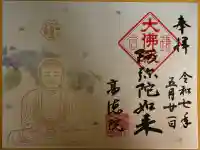 奉拝
令和七年
五月廿一日
大佛
阿弥陀如来
高徳院